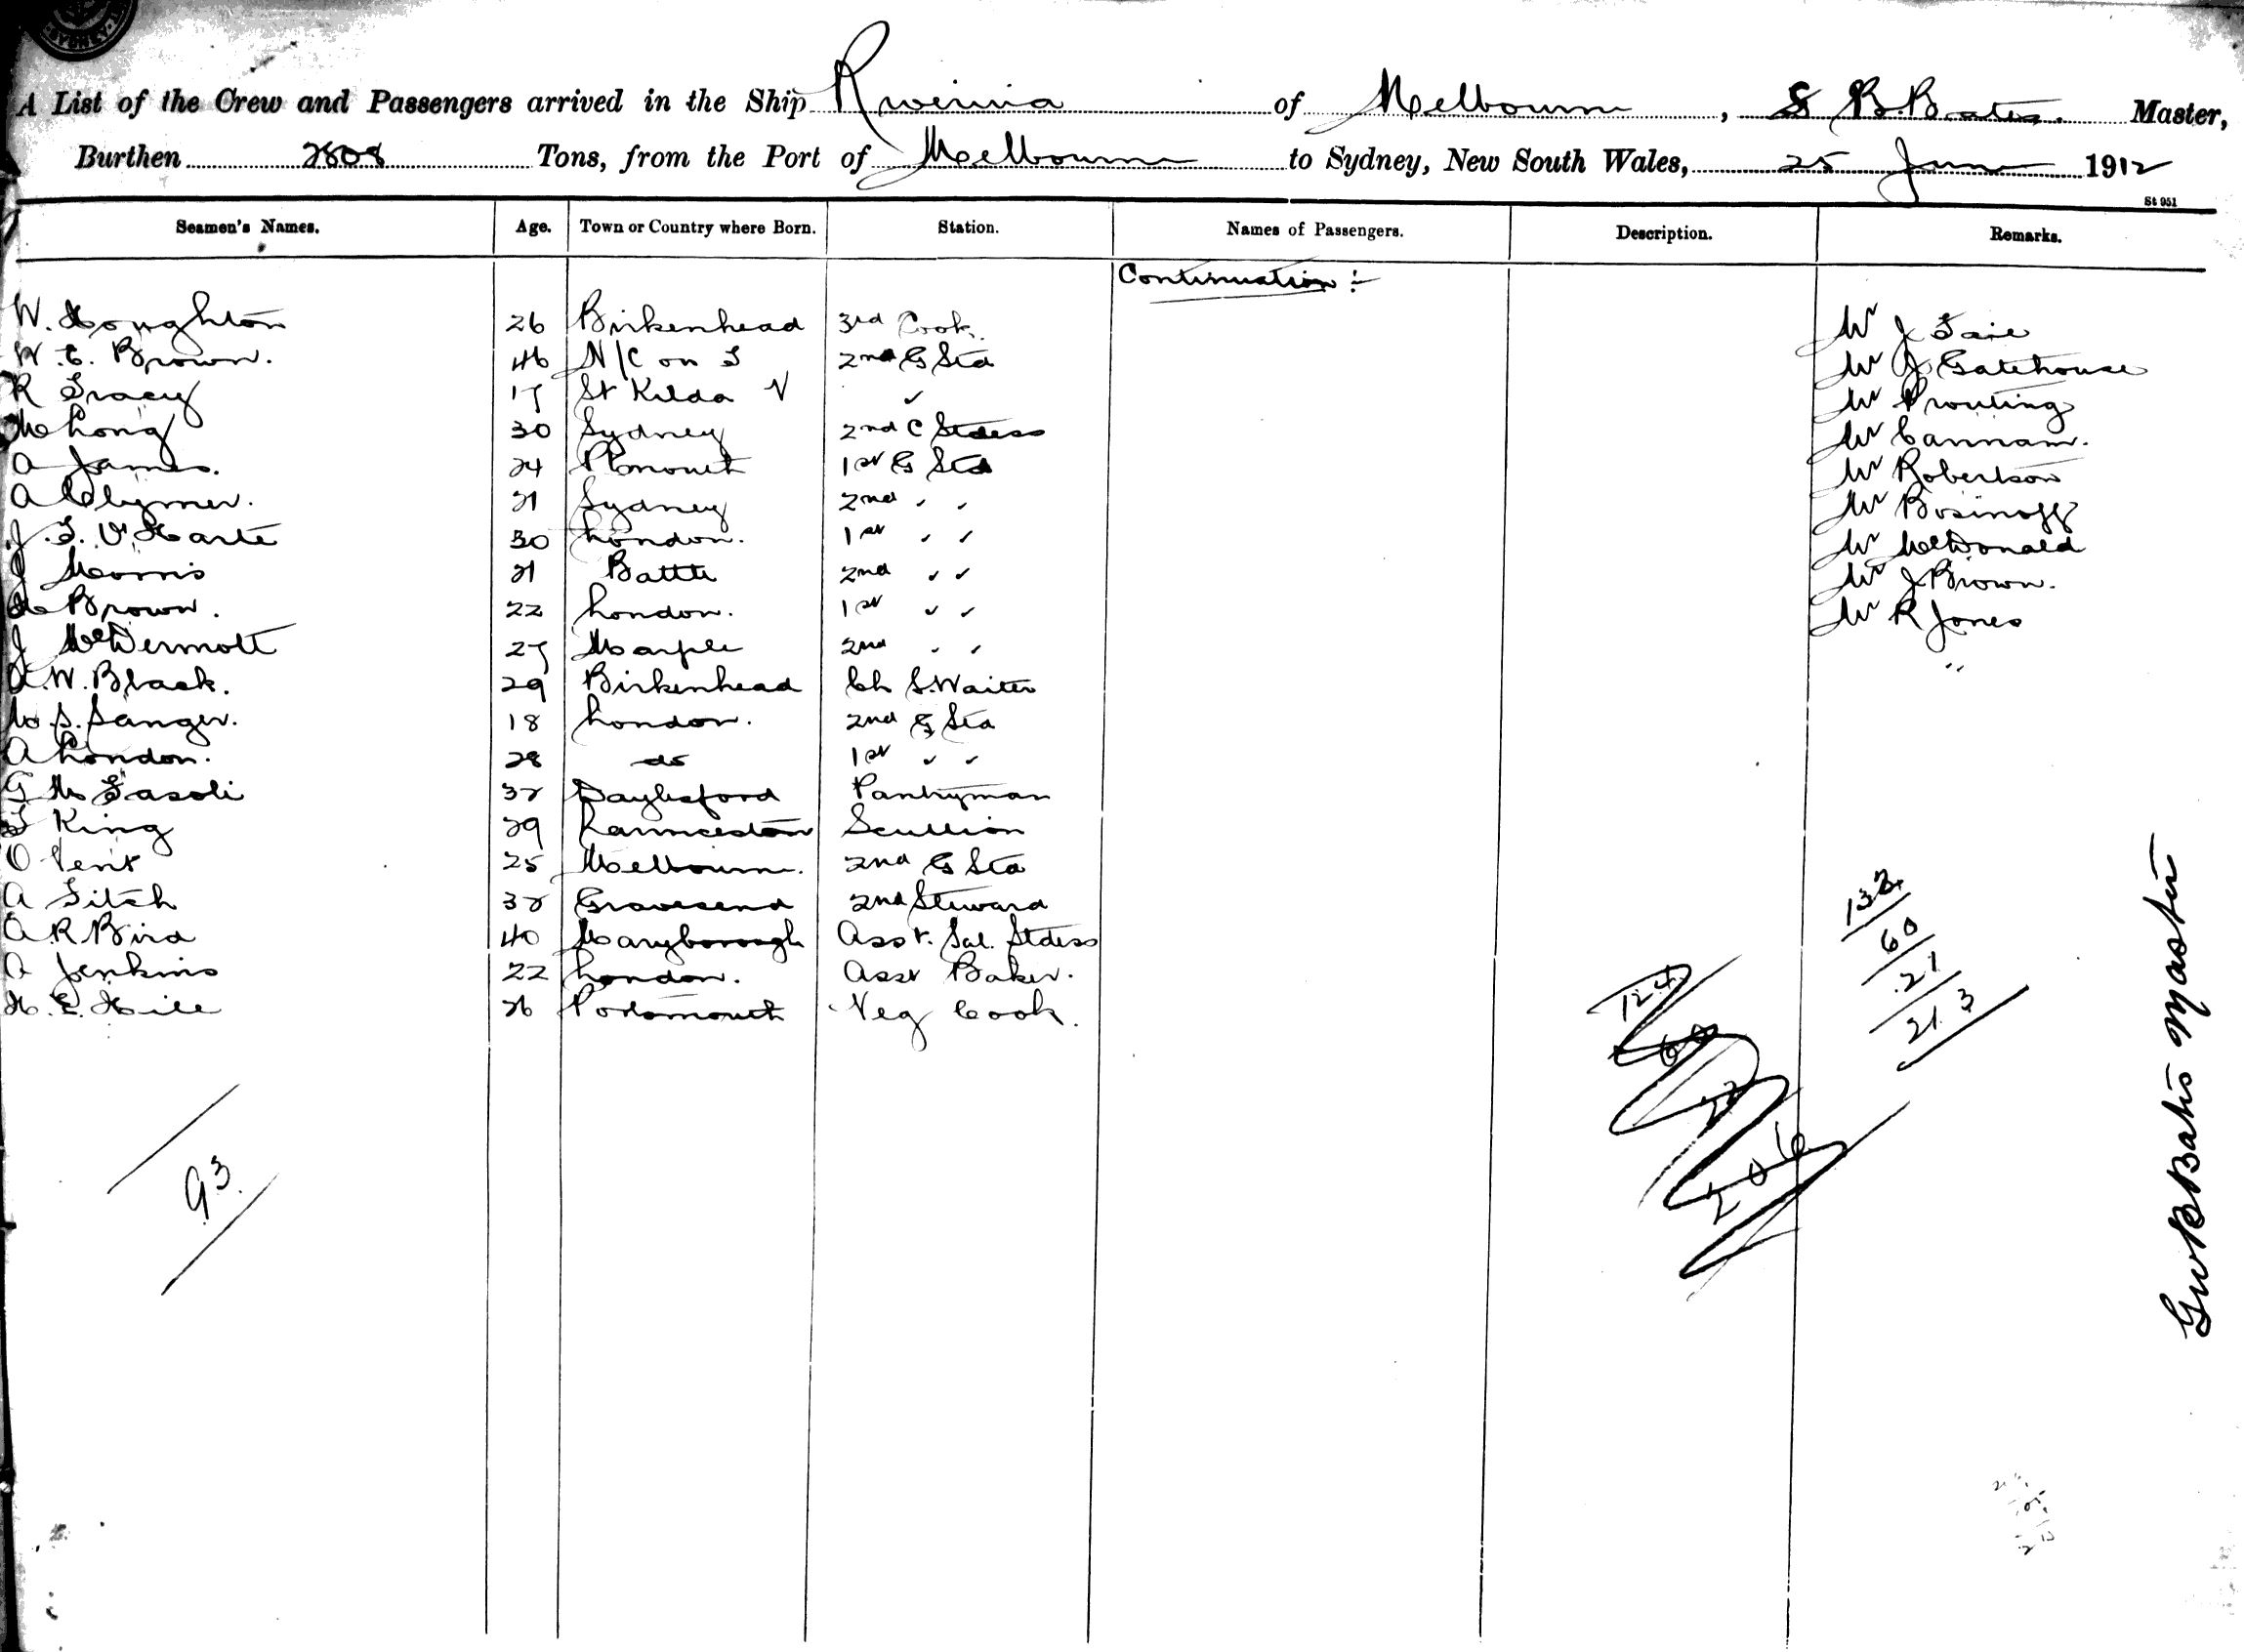 A List of the Crew and Passengers arrived in the Ship Riverina of Melbourne, S B. Bates. Master,
Burthen 2808 Tons, from the Port of Melbourne to Sydney, New South Wales, 25 June 1912
St 951
Seamen's Names. Age. Town or Country where Born. Station. Names of Passengers. Description. Remarks.
Continuation :-
W. Houghton 26 Birkenhead 3rd Cook. Mr J Tait
W. E. Brown. 46 N/C on T 2nd G Std Mr J Gatehouse
R Tracy 17 St Kilda V ✓ Mr Prouting
M Long 30 Sydney 2nd C Stdess Mr Cannam.
A James. 24 Plymouth 1st G Std Mr Robertson
A Clymer. 21 Sydney 2nd ✓ ✓ Mr Bosinoff
J. T. V Harte 30 London. 1st ✓ ✓ Mr McDonald
J Morris 21 Battle 2nd ✓ ✓ Mr J Brown.
H Brown. 22 London. 1st ✓ ✓ Mr R Jones
J McDermott 27 Marple 2nd ✓ ✓
A. W. Black. 29 Birkenhead Ch S. Waiter
W. S. Sanger. 18 London. 2nd G Std
A London. 28 do 1st ✓ ✓
G M Fasoli 32 Daylesford Pantryman
T King 29 Launceston Scullion
O Vent 25 Melbourne. 2nd G Std
A Fitch 32 Gravesend 2nd Steward
A. R Bird 40 Maryborough Asst. Sal. Stdess
A Jenkins 22 London. Asst Baker.
H. E. Hill 26 Portsmouth Veg Cook.
93.
124
60
22
206
132
60
21
213
Gw B Bates Master